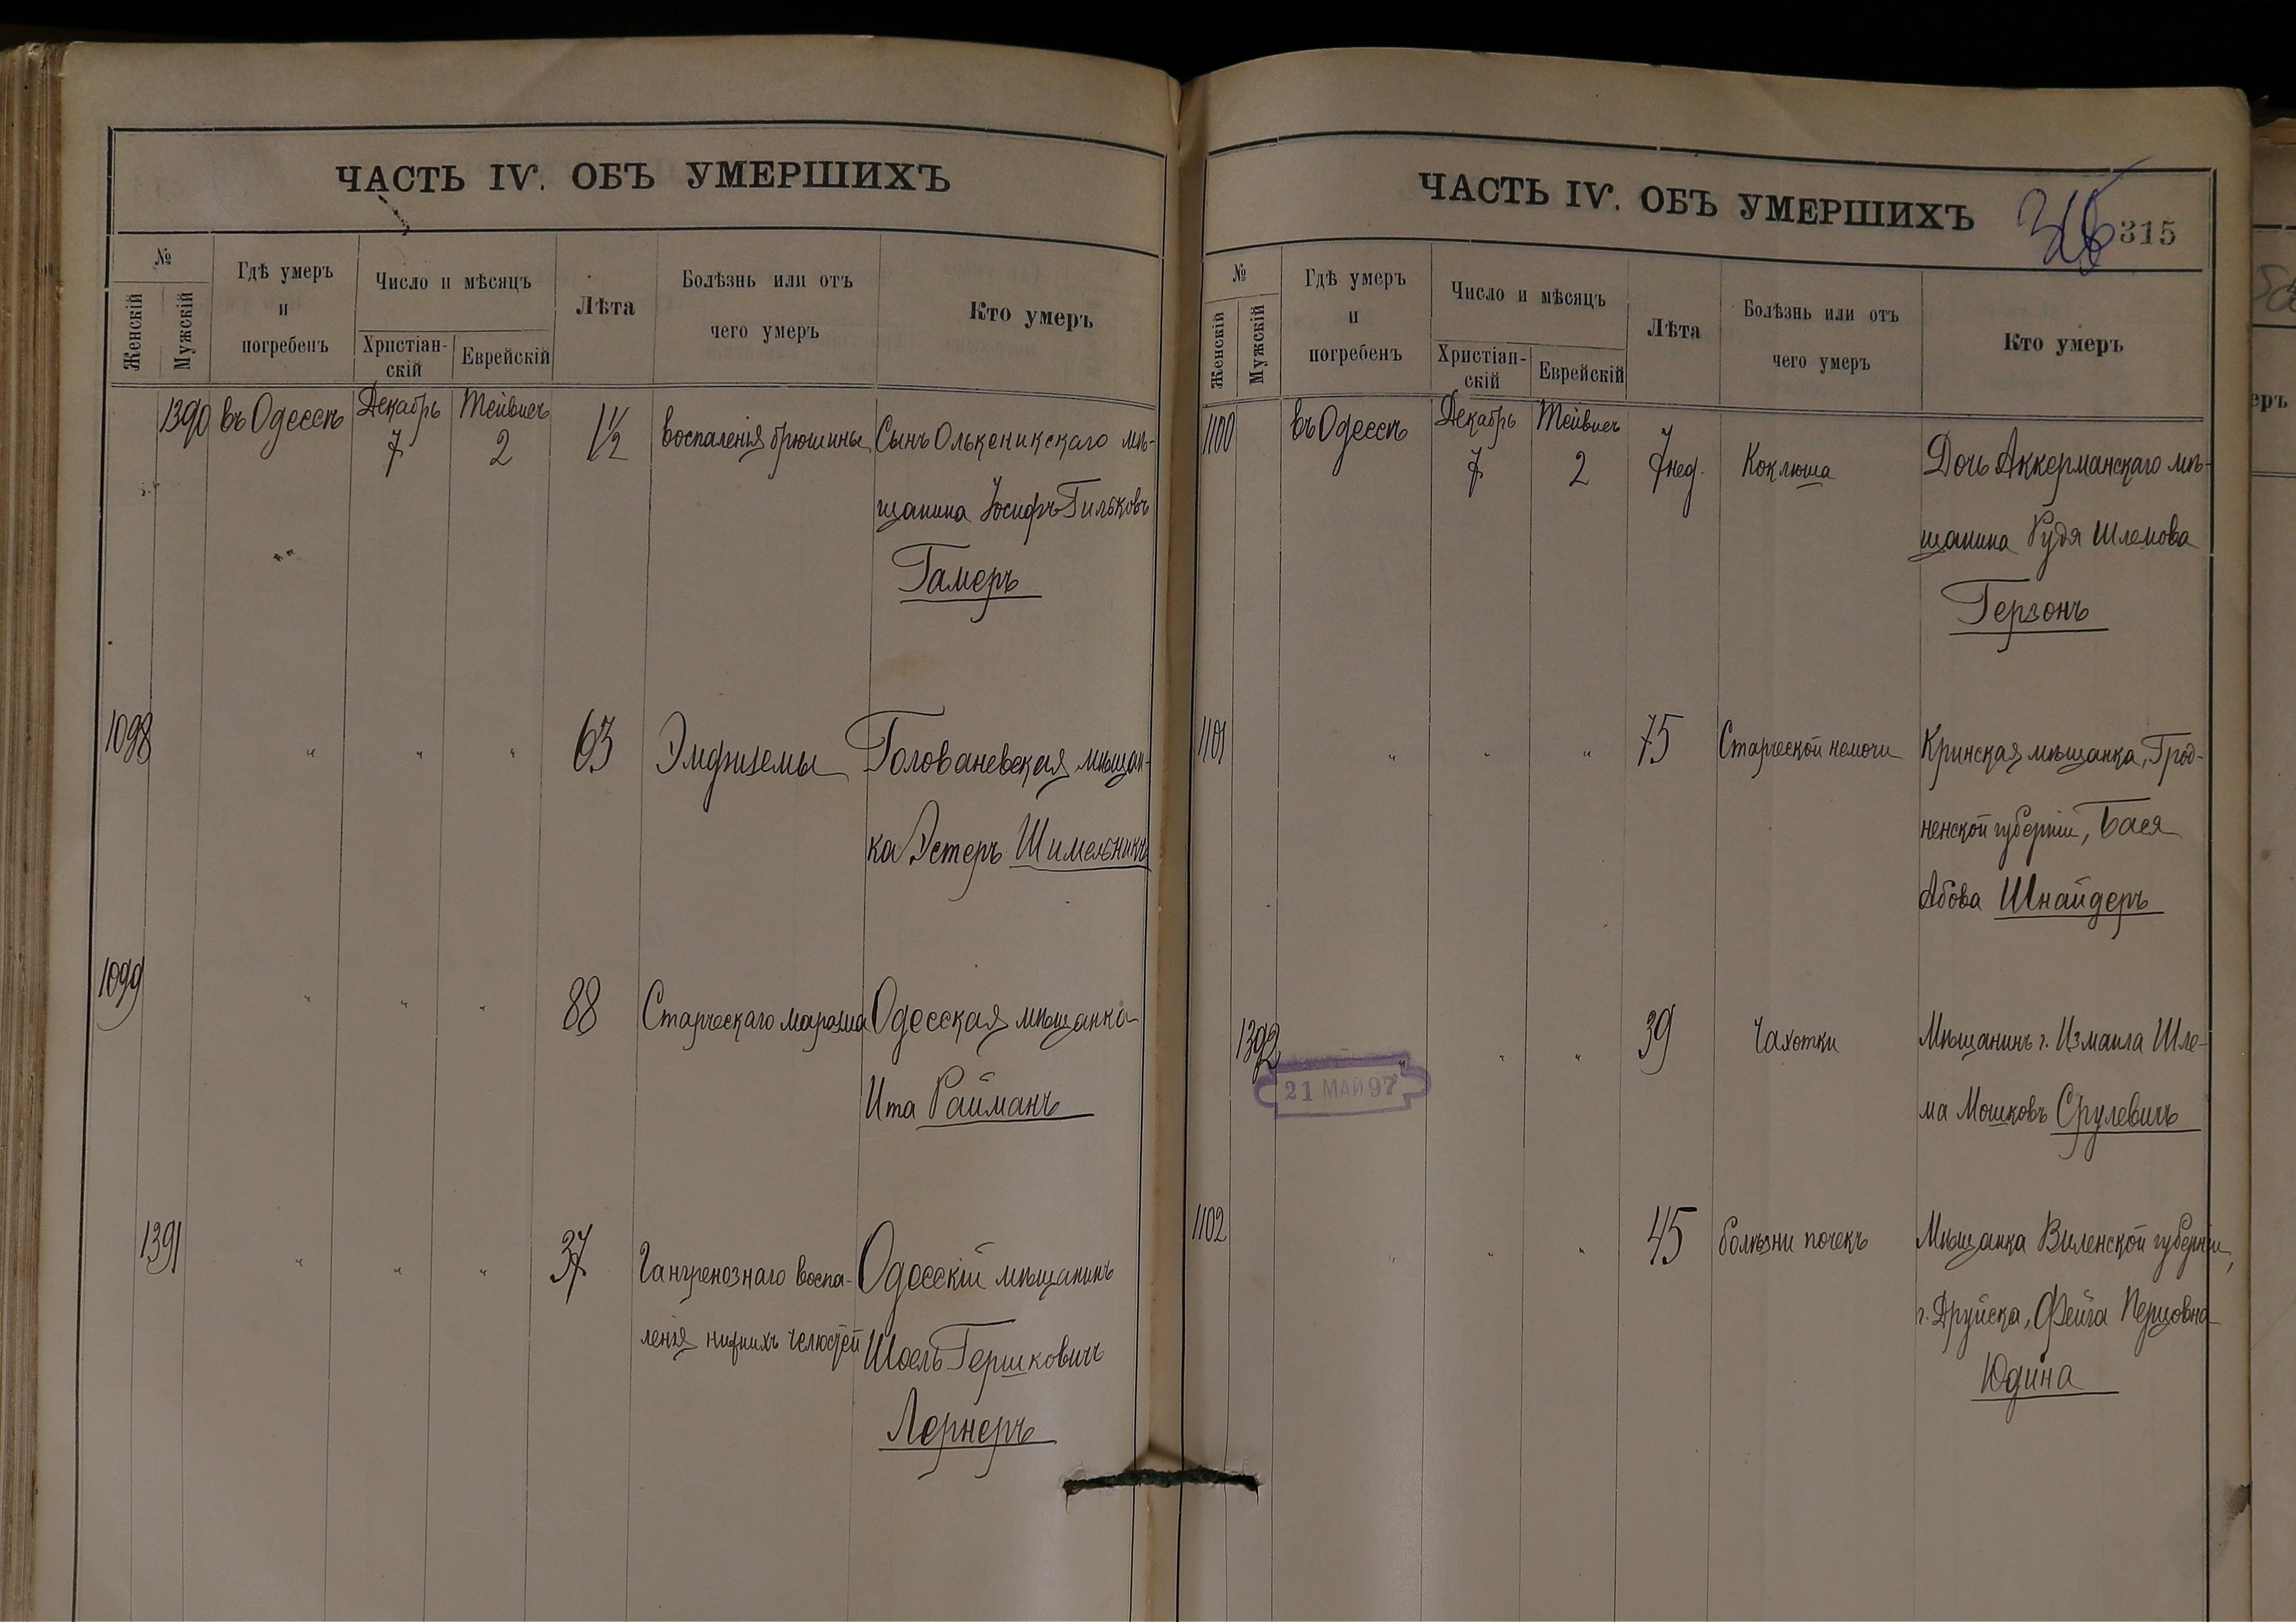 ЧАСТЬ IV. ОБЪ УМЕРШИХЪ
№
Женскій
Мужскій
Гдѣ умеръ
и
погребенъ
Число и мѣсяцъ
Христіан-
скій
Еврейскій
Лѣта
Болѣзнь или отъ
чего умеръ
Кто умеръ
1390 въ Одессѣ Декабрь 7 Тейвисъ 2 1½ воспаленія брюшины Сынъ Олькеникскаго мѣ-
щанина Іосифъ Гильковъ
Гамеръ
1098 " " " 63 Эмфиземы Голованевская мѣщан-
ка Эстеръ Шимельникъ
1099 " " " 88 Старческаго маразма Одесская мѣщанка
Ита Райманъ
1391 " " " 37 Гангренознаго воспа- Одесскій мѣщанинъ
ленія нижнихъ челюстей Шоель Гершковичъ
Лернеръ
ЧАСТЬ IV. ОБЪ УМЕРШИХЪ
315
№
Женскій
Мужскій
Гдѣ умеръ
и
погребенъ
Число и мѣсяцъ
Христіан-
скій
Еврейскій
Лѣта
Болѣзнь или отъ
чего умеръ
Кто умеръ
1100 въ Одессѣ Декабрь 7 Тейвисъ 2 7 нед. Коклюша Дочь Аккерманскаго мѣ-
щанина Рудя Шлемова
Герзонъ
1101 " " " 75 Старческой немочи Кринская мѣщанка, Грод-
ненской губерніи, Бася
Абова Шнайдеръ
1392 " " " 39 Чахотки Мѣщанинъ г. Измаила Шле-
ма Мошковъ Срулевичъ
21 МАЙ 97
1102 " " " 45 болѣзни почекъ Мѣщанка Виленской губерніи,
г. Друйска, Фейга Перцовна
Юдина